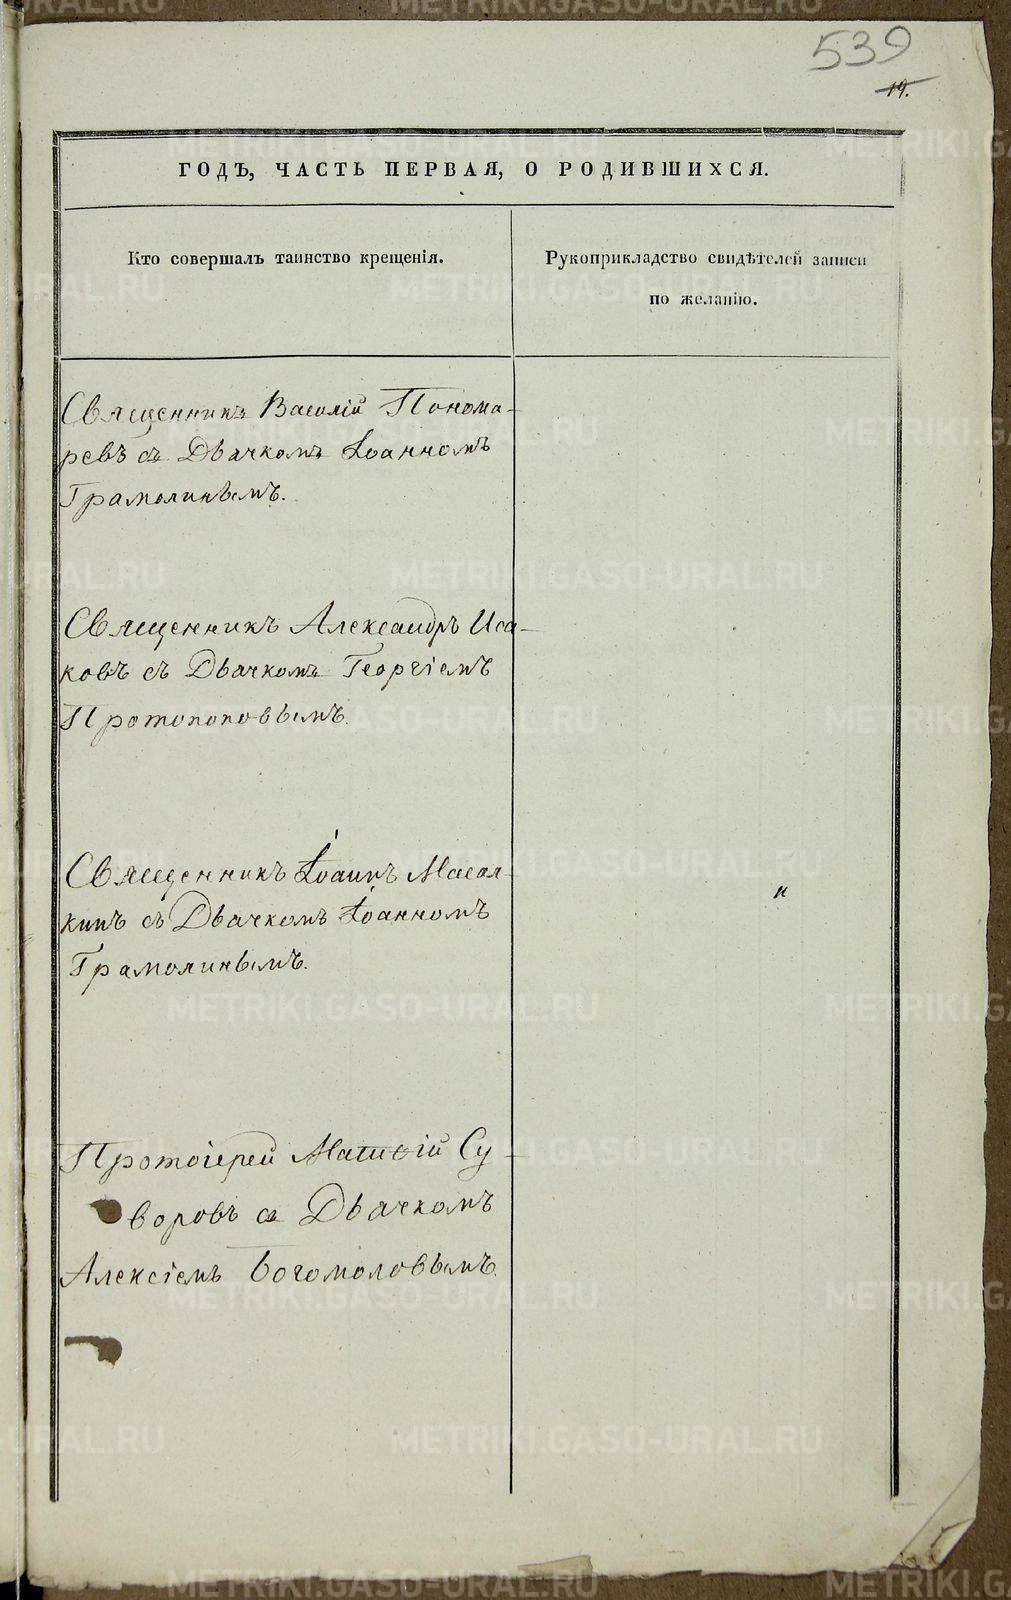 539
19.
ГОДЪ, ЧАСТЬ ПЕРВАЯ, О РОДИВШИХСЯ.
Кто совершалъ таинство крещенія.
Рукоприкладство свидѣтелей записи
по желанію.
Священникъ Василій Понома-
ревъ съ Дьячкомъ Іоанномъ
Грамолинымъ.
Священникъ Александръ Иса-
ковъ съ Дьячкомъ Георгіемъ
Протопоповымъ.
Священникъ Іоаннъ Масал-
кинъ съ Дьячкомъ Іоанномъ
Грамолинымъ.
Протоіерей Матвѳій Су-
воровъ съ Дьячкомъ
Алексіемъ Богомоловымъ.
METRIKI.GASO-URAL.RU